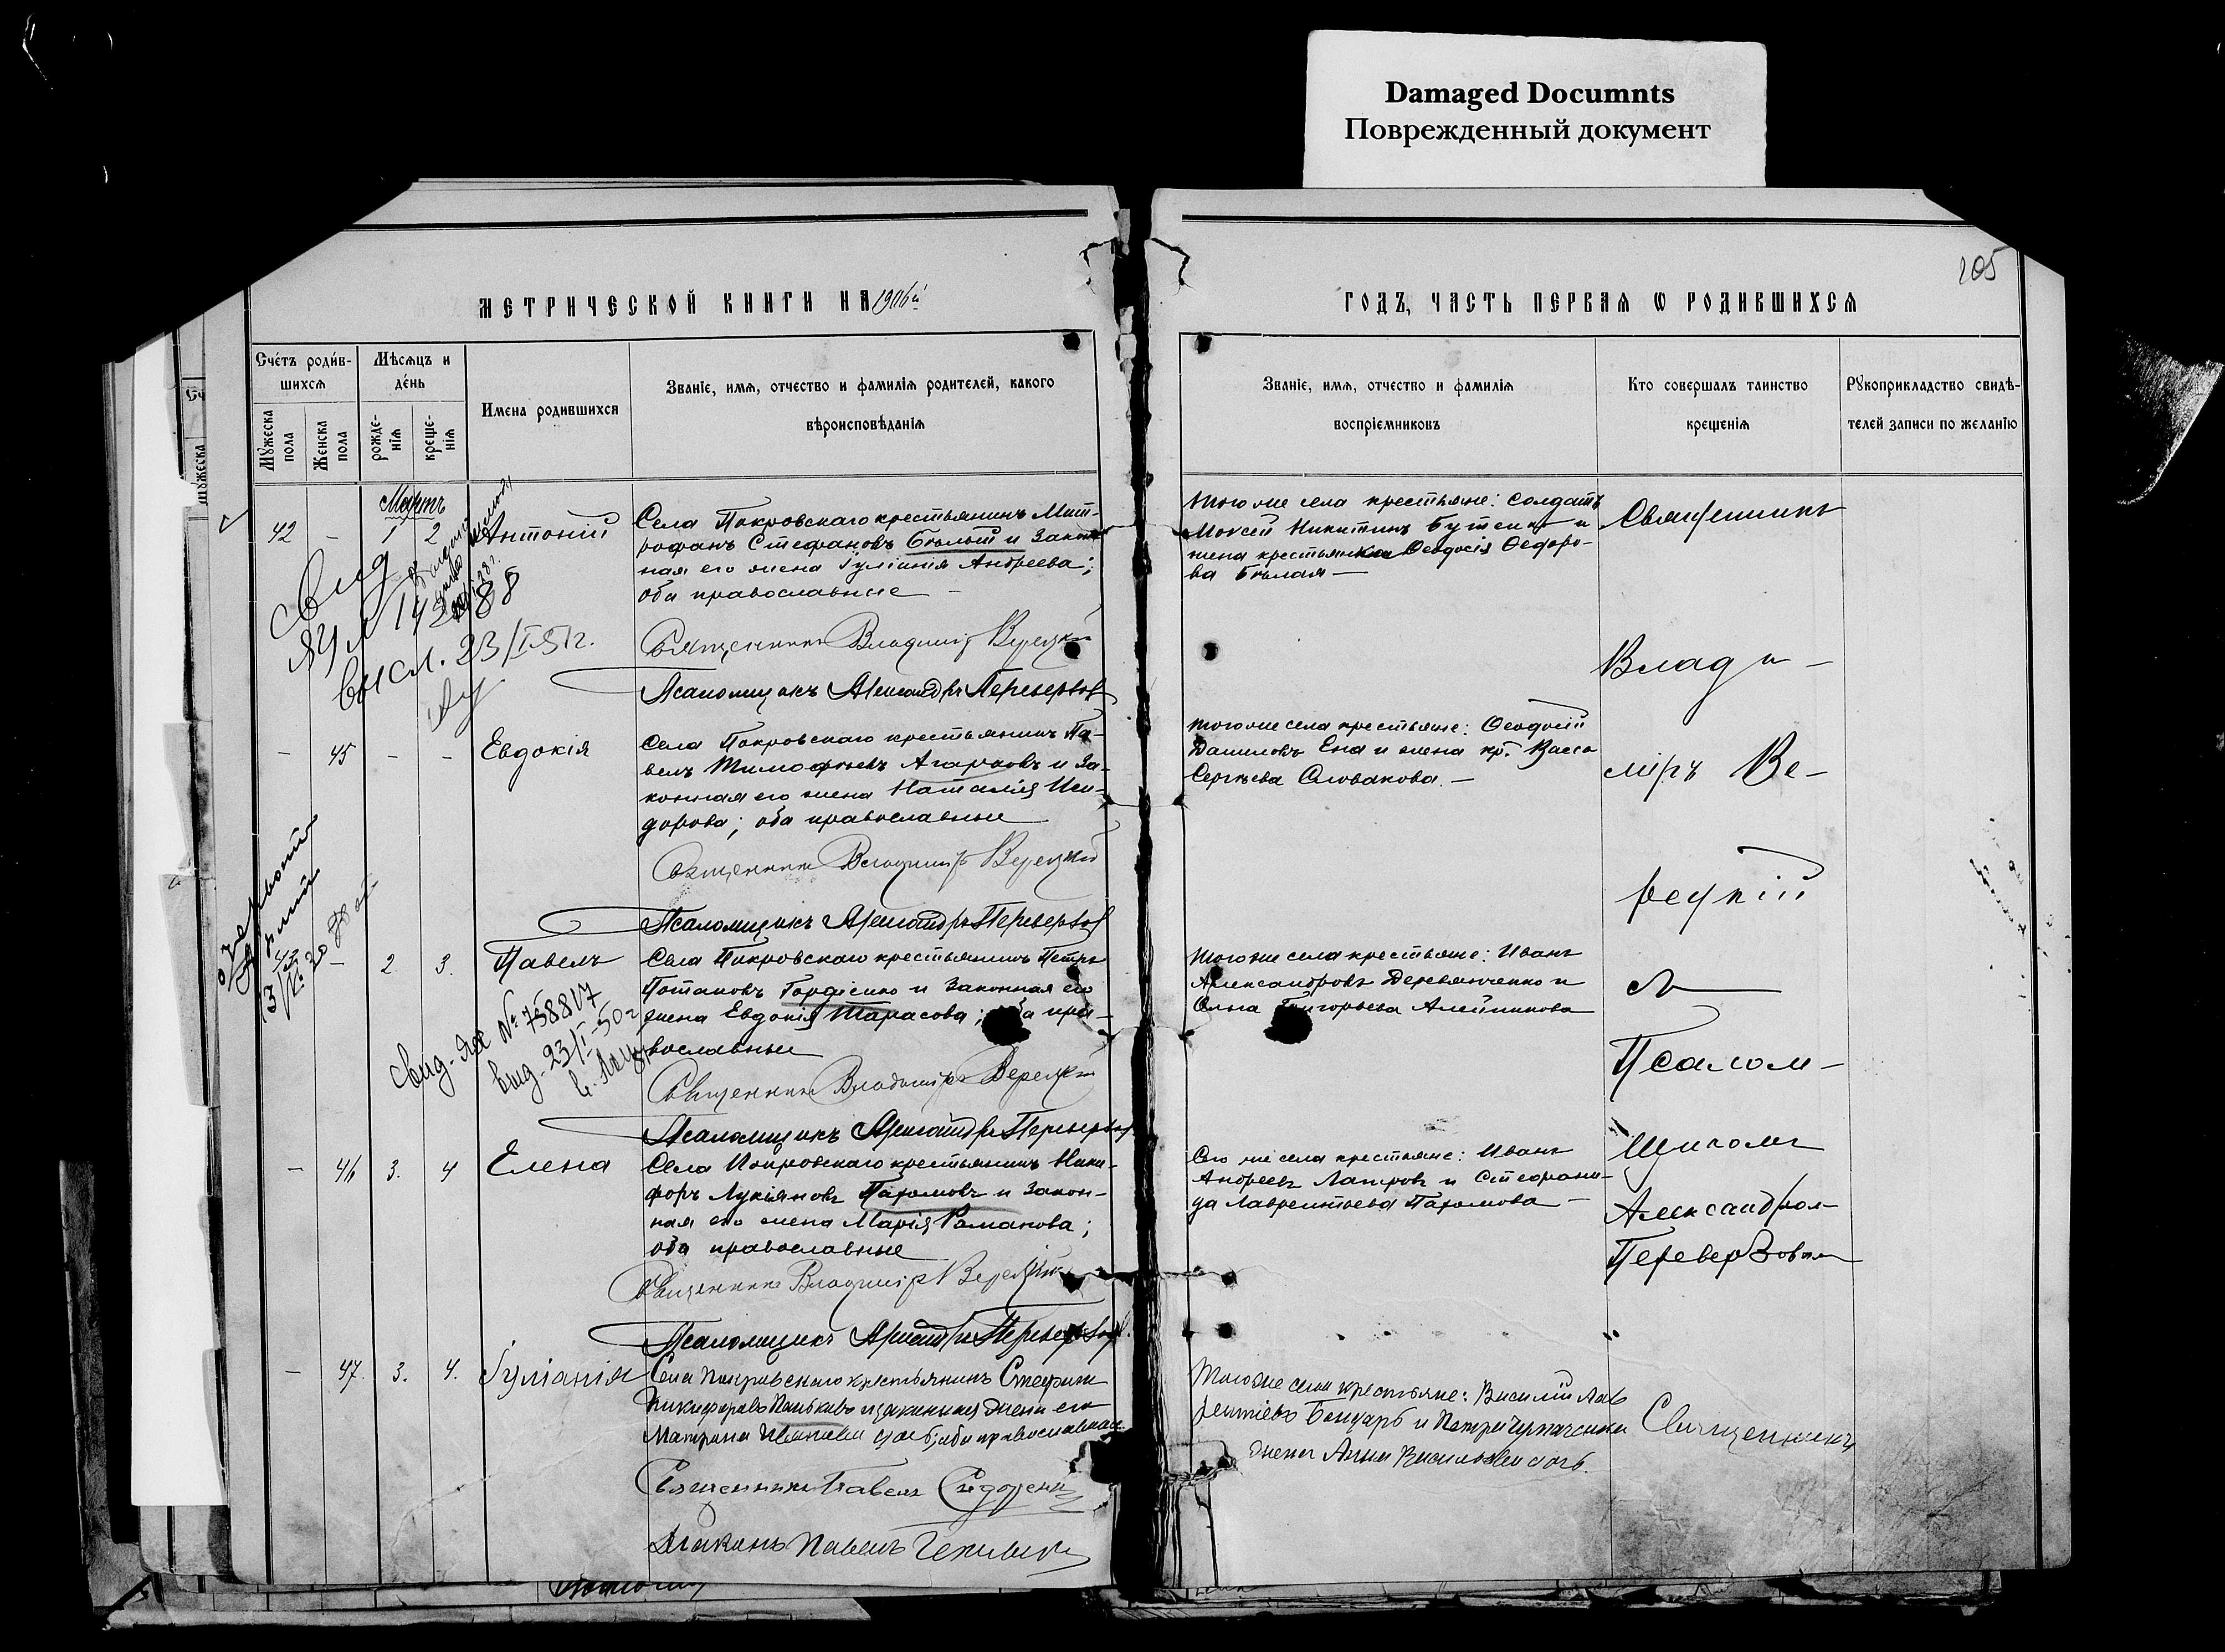 Damaged Documnts
Поврежденный документ
105
МЕТРИЧЕСКОЙ КНИГИ НА 1906й
ГОДЪ, ЧАСТЬ ПЕРВАЯ Ѡ РОДИВШИХСЯ
Счетъ родив-
шихся
Мужеска
пола
Женска
пола
Мѣсяцъ и
день
рожде-
нія
креще-
нія
Имена родившихся
Званіе, имя, отчество и фамилія родителей, какого
вѣроисповѣданія
Званіе, имя, отчество и фамилія
воспріемниковъ
Кто совершалъ таинство
крещенія
Рукоприкладство свидѣ-
телей записи по желанію
Мартъ
42 - 1 2 Антоній
Села Покровскаго крестьянинъ Мит-
рофанъ Стефановъ Бѣлый и закон-
ная его жена Іуліанія Андреева;
оба православные
Священникъ Владиміръ Верецкій
Псаломщикъ Александръ Переверзовъ
Того же села крестьяне: солдатъ
Моисей Никитинъ Бутенко и
жена крестьянина Ѳеодосія Ѳедоро-
ва Бѣлая
свид
выдл. 23/I-51г.
- 45 - - Евдокія
Села Покровскаго крестьянинъ Па-
велъ Тимофѣевъ Агарковъ и за-
конная его жена Наталія Иси-
дорова; оба православные
Священникъ Владиміръ Верецкій
Псаломщикъ Александръ Переверзовъ
Того же села крестьяне: Ѳеодосій
Даниловъ Ена и жена кр. Васса
Сергѣева Словакова.
- 2. 3. Павелъ
Села Покровскаго крестьянинъ Петръ
Потаповъ Гордіенко и законная его
жена Евдокія Тарасова; оба пра-
вославные
Священникъ Владиміръ Верецкій
Псаломщикъ Александръ Переверзовъ
Того же села крестьяне: Иванъ
Александровъ Деревянченко и
Ольга Григорьева Алейникова
Свид. № 758817
выд. 23/I-50г
- 46 3. 4 Елена
Села Покровскаго крестьянинъ Ники-
форъ Лукіяновъ Пахомовъ и закон-
ная его жена Марія Романова;
оба православные
Священникъ Владиміръ Верецкій
Псаломщикъ Александръ Переверзовъ
Сего же села крестьяне: Иванъ
Андреевъ Лапровъ и Стефани-
да Лаврентьева Пахомова
Священникъ
Влади-
міръ Ве-
рецкій
съ
Псалом-
щикомъ
Александром
Переверзовым
- 47. 3. 4. Іуліанія
Села Покровскаго крестьянинъ Стефанъ
Никифоровъ Панькивъ и законная жена его
Матрона Иванова дочь; оба православные.
Священникъ Павелъ Сидоренк
Діаконъ Павелъ
Того же села крестьяне: Василій Лав
рентіевъ Бондарь и Петра Чумаченка
жена Анна Васильева дочь.
Священникъ